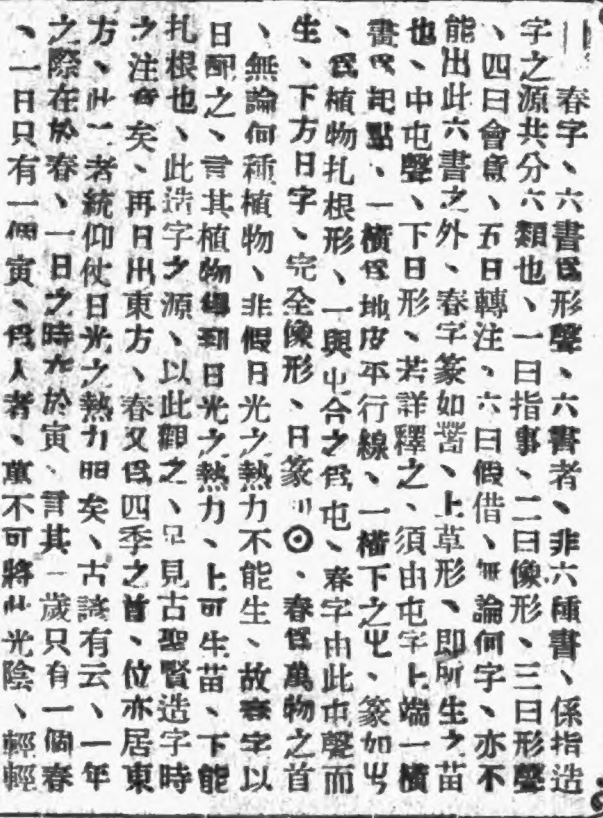 春字、六書爲形聲、六書者、非六種書、係指造
字之源共分六類也、一曰指事、二曰像形、三曰形聲
、四曰會意、五曰轉注、六曰假借、無論何字、亦不
能出此六書之外、春字篆如萅、上草形、即所生之苗
也、中屯聲、下日形、若詳釋之、須由屯字上端一橫
畫爲起點、一橫爲地皮平行線、一橫下之屯、篆如屮
、爲植物扎根形、一與屮合之爲屯、春字由此屯聲而
生、下方日字、完全像形、日篆⊙、春爲萬物之首
、無論何種植物、非假日光之熱力不能生、故春字以
日配之、言其植物得到日光之熱力、上可生苗、下能
扎根也、此造字之源、以此觀之、足見古聖賢造字時
之注意矣、再日出東方、春又爲四季之首、位亦居東
方、此二者統仰仗日光之熱力明矣、古諺有云、一年
之際在於春、一日之時在於寅、言其一歲只有一個春
、一日只有一個寅、爲人者、萬不可將此光陰、輕輕